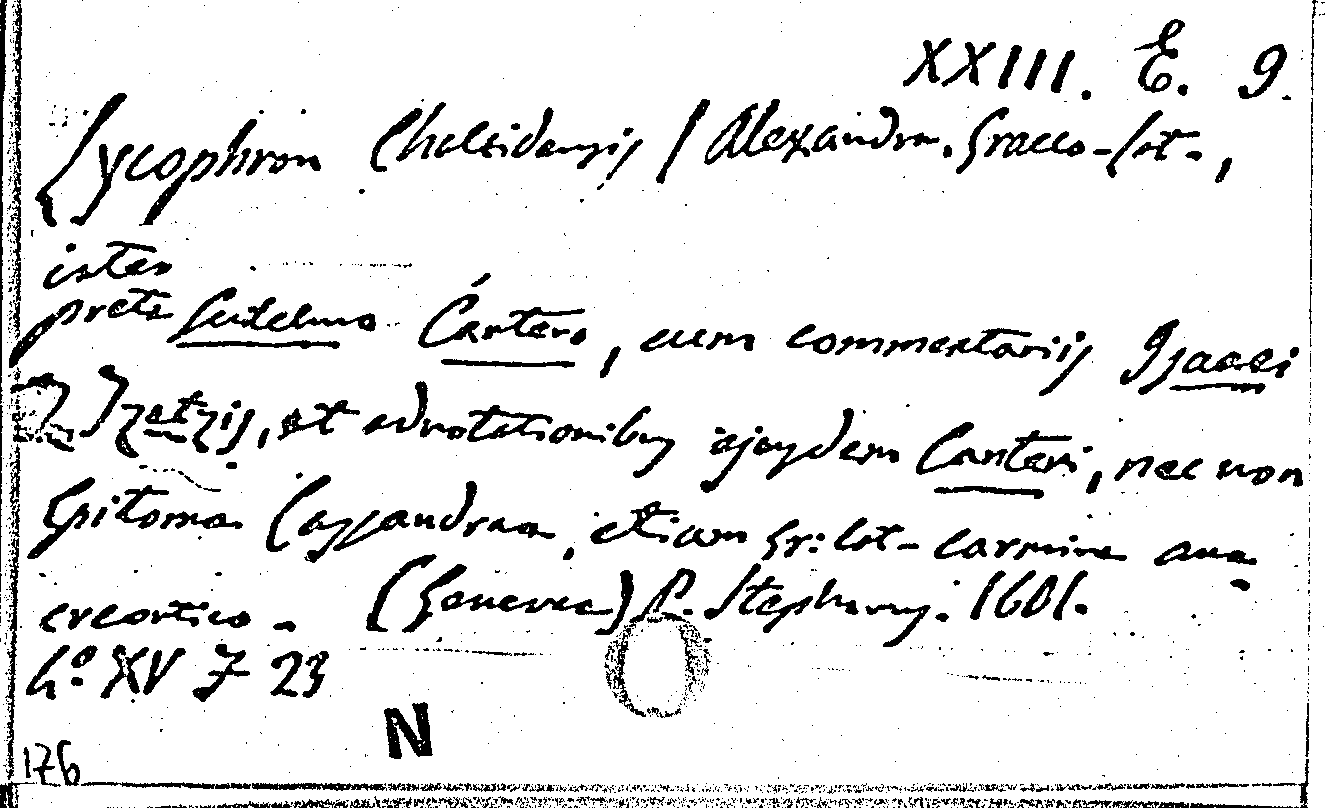 XXIII. E. 9.
Lycophron Chalcidensis / Alexandra. Graeco-lat.,
inter
prete Gulielmo Cantero, cum commentariis Isaaci
Tzetzis, et adnotationibus ejusdem Canteri, nec non
Epitome Cassandrae, etiam gr: lat- carmine ana
creontico - (Genevae) P. Stephanus. 1601.
4º XV F 23
N
176